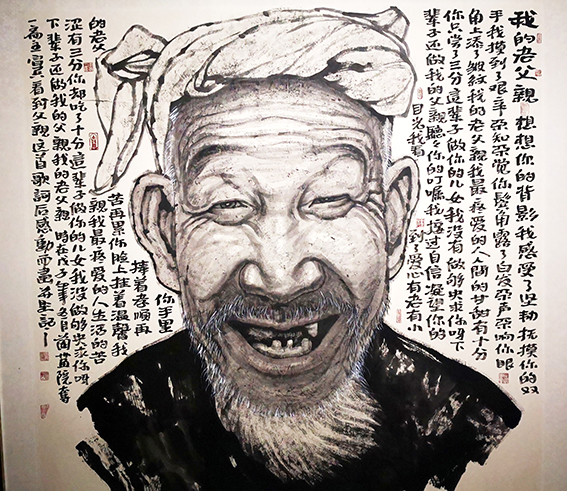 我的老父親 想想你的背影我感受了坚韧抚摸你的双
手我摸到了艰辛不知不觉你鬓角露了白发不声不响你眼
角上添了皱纹我的老父親我最疼爱的人間的甘甜有十分
你只尝了三分這辈子做你的儿女我没有做够央求你呀下
辈子还做我的父親聽聽你的叮嘱我接过自信凝望你的
目光我看
到了爱心有老有小
你手里
捧着孝順再
苦再累你脸上挂着温馨我
的老父
親我最疼爱的人生活的苦
涩有三分你却吃了十分這辈子做你的儿女我没做够央求你呀
下辈子还做我的父親我的老父親 時在戊子年五月
看到父親這首歌詞后感動而畫并記